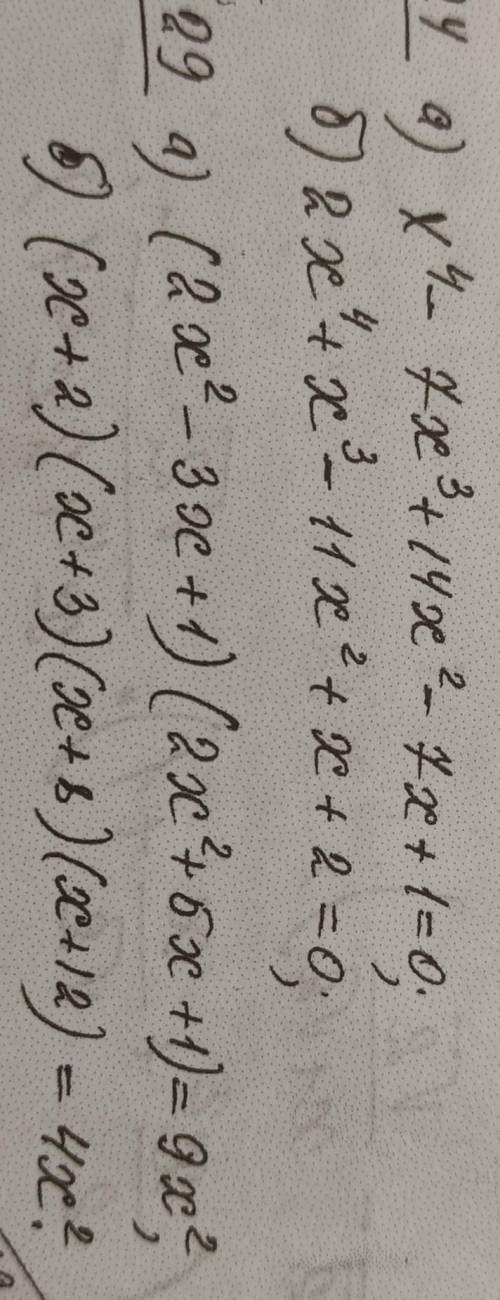 24 а) x⁴ - 7x³ + 14x² - 7x + 1 = 0;
б) 2x⁴ + x³ - 11x² + x + 2 = 0;
29 а) (2x² - 3x + 1)(2x² + 5x + 1) = 9x²,
б) (x + 2)(x + 3)(x + 8)(x + 12) = 4x².